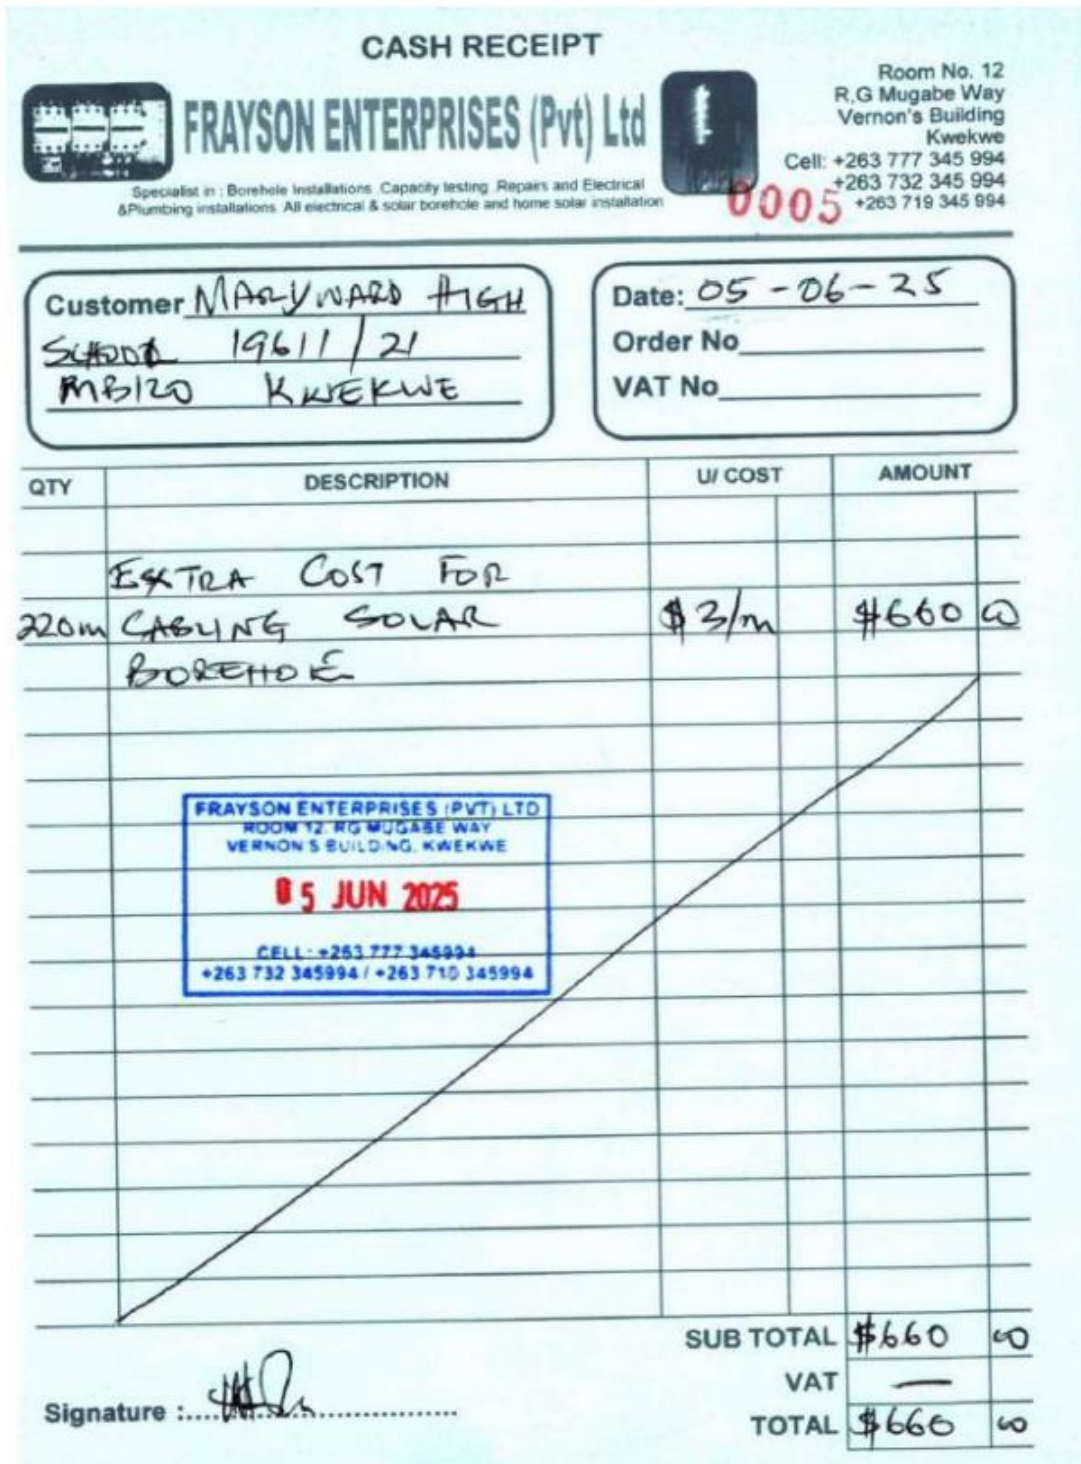 CASH RECEIPT
FRAYSON ENTERPRISES (Pvt) Ltd
Specialist in : Borehole Installations .Capacity testing .Repairs and Electrical
&Plumbing installations. All electrical & solar borehole and home solar installation
Room No. 12
R,G Mugabe Way
Vernon's Building
Kwekwe
Cell: +263 777 345 994
+263 732 345 994
+263 719 345 994
0005
Customer MARYWARD HIGH
SCHOOL 19611/21
MBIZO KWEKWE
Date: 05-06-25
Order No
VAT No
QTY DESCRIPTION U/ COST AMOUNT
EXTRA COST FOR
220m CABLING SOLAR $3/m $660 00
BOREHOLE
FRAYSON ENTERPRISES (PVT) LTD
ROOM 12, RG MUGABE WAY
VERNON'S BUILDING, KWEKWE
05 JUN 2025
CELL: +263 777 345994
+263 732 345994 / +263 710 345994
SUB TOTAL $660 00
VAT —
TOTAL $660 00
Signature :